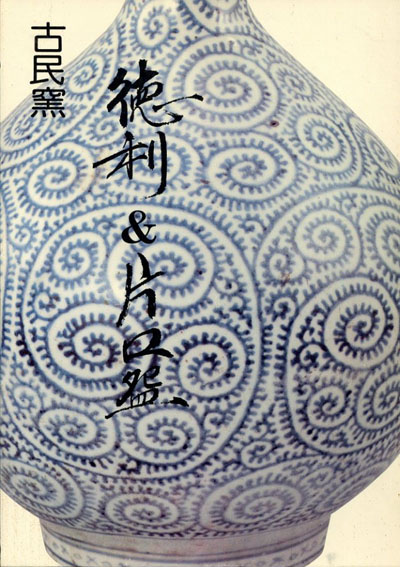 古民窯
徳利&片口盌